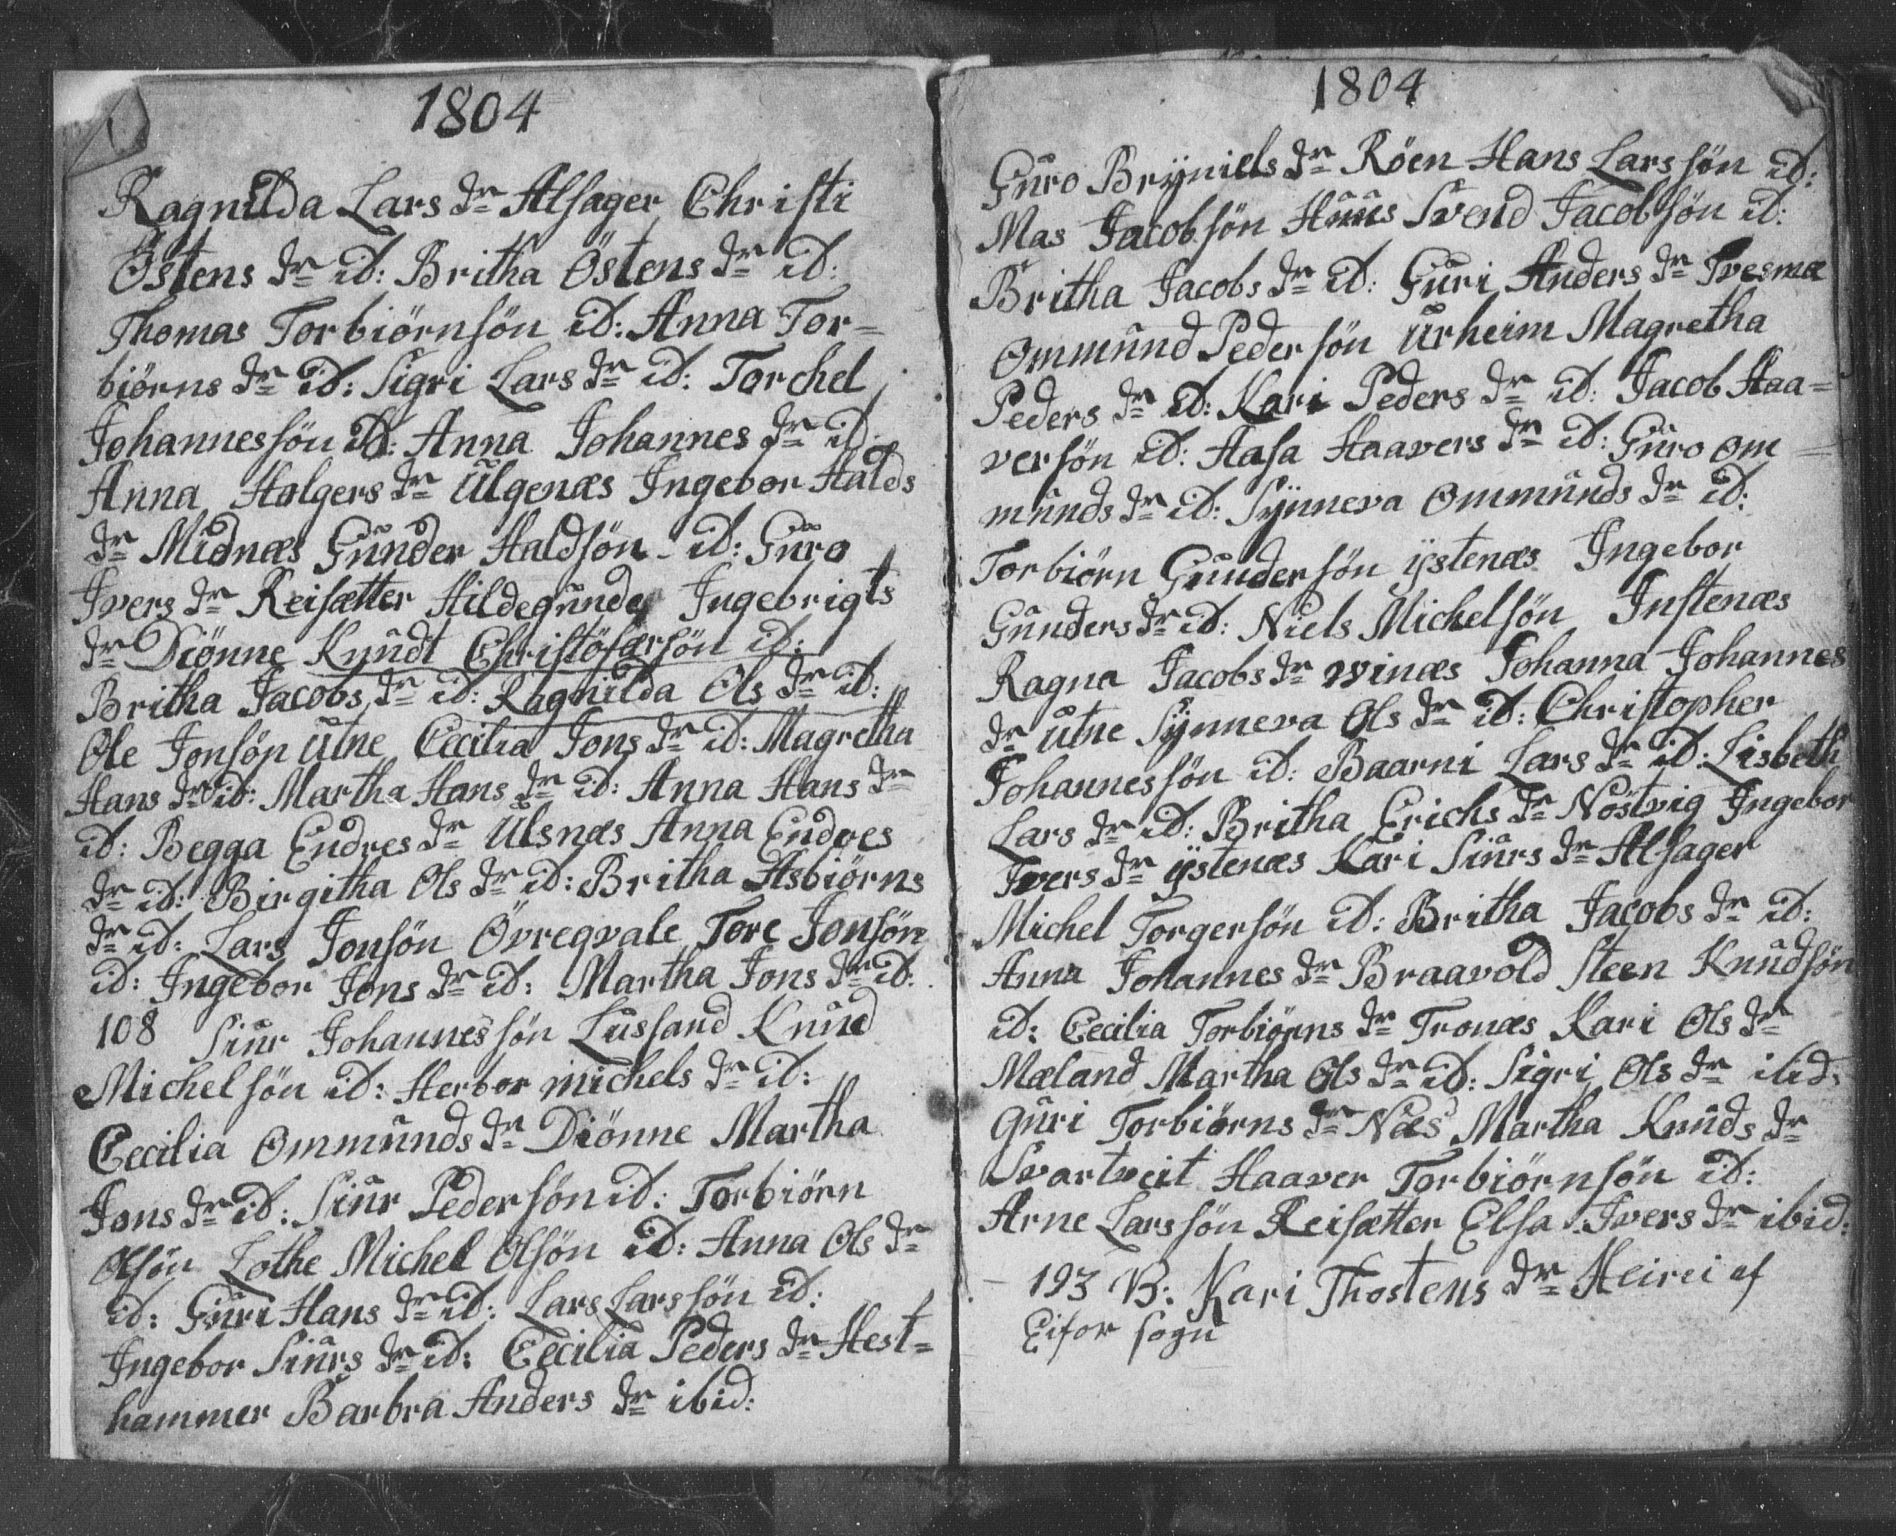 1804
Ragnilda Lars dr Alsager Christi
Östens dr id: Britha Östens dr id:
Thomas Torbiörnsön id: Anna Tor=
biörns dr id: Sigri Lars dr id: Torchel
Johannessön id: Anna Johannes dr id:
Anna Halgers dr Ulgenæs Ingebor Halds
dr Midnæs Gunder Haldsön id: Guro
Ivers dr Reisætter Hildegunde Ingebrigts
dr Diönne Knudt Christofersön id:
Britha Jacobs dr id: Ragnilda Ols dr id:
Ole Jonsön Utne Cecilia Jons dr id: Magretha
Hans dr id: Martha Hans dr id: Anna Hans dr
id: Begga Endres dr Ulsnæs Anna Endres
dr id: Birgitha Ols dr id: Britha Asbiörns
dr id: Lars Jonsön Övreqvale Tore Jonsön
id: Ingebor Jons dr id: Martha Jons dr id:
108 Siur Johannessön Lussand Knud
Michelsön id: Herbor michels dr id:
Cecilia Ommunds dr Diönne Martha
Jons dr id: Siur Pedersön id: Torbiörn
Olsön Lothe Michel Olsön id: Anna Ols dr
id: Guri Hans dr id: Lars Larssön id:
Ingebor Siurs dr id: Cecilia Peders dr Hest=
hammer Barbra Anders dr ibid:
1804
Guro Bryniels dr Röen Hans Larssön id:
Mas Jacobsön Huus Svend Jacobsön id:
Britha Jacobs dr id: Guri Anders dr Tvesmæ
Ommund Pedersön Urheim Magretha
Peders dr id: Kari Peders dr id: Jacob Haa=
versön id: Aasa Haavers dr id: Guro Om=
munds dr id: Synneva Ommunds dr id:
Torbiörn Gundersön ystenæs Ingebor
Gunders dr id: Niels Michelsön Instenæs
Ragna Jacobs dr vinæs Johanna Johannes
dr Utne Synneva Ols dr id: Christopher
Johannessön id: Baarni Lars dr id: Lisbeth
Lars dr id: Britha Erichs dr Nöstvig Ingebor
Ivers dr ystenæs Kari Siurs dr Alsager
Michel Torgersön id: Britha Jacobs dr id:
Anna Johannes dr Braavold Steen Knudsön
id: Cecilia Torbiörns dr Tronæs Kari Ols dr
Mæland Martha Ols dr id: Sigri Ols dr ibid:
Guri Torbiörns dr Næs Martha Knuds dr
Svartveit Haaver Torbiörnsön id:
Arne Larssön Reisætter Elsa Ivers dr ibid:
193 B: Kari Thostens dr Heirei af
Eifor sogn